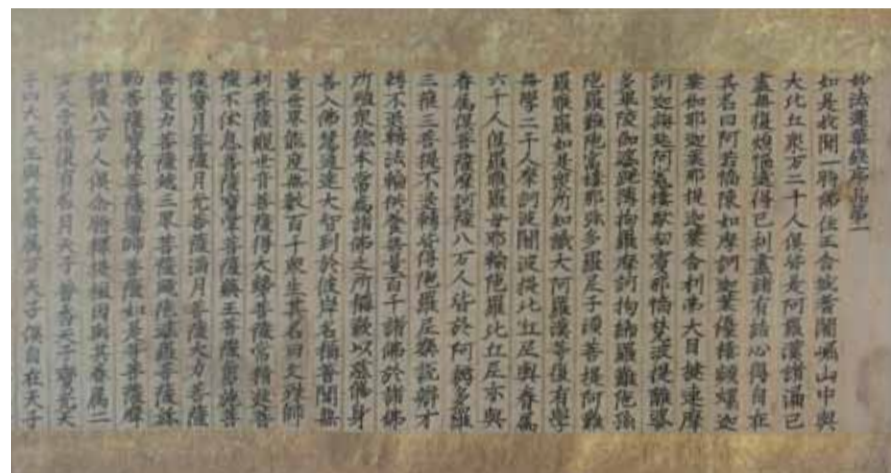 妙法蓮華経序品第一
如是我聞一時佛住王舍城耆闍崛山中與
大比丘衆万二千人俱皆是阿羅漢諸漏已
盡無復煩惱逮得己利盡諸有結心得自在
其名曰阿若憍陳如摩訶迦葉優樓頻螺迦
葉伽耶迦葉那提迦葉舍利弗大目揵連摩
訶迦旃延阿㝹樓馱劫賓那憍梵波提離婆
多畢陵伽婆蹉薄拘羅摩訶拘絺羅難陀孫
陀羅難陀富樓那弥多羅尼子須菩提阿難
羅睺羅如是衆所知識大阿羅漢等復有學
無學二千人摩訶波闍波提比丘尼與眷属
六千人俱羅睺羅母耶輸陀羅比丘尼亦與
眷属俱菩薩摩訶薩八万人皆於阿耨多羅
三藐三菩提不退轉皆得陀羅尼樂說辯才
轉不退轉法輪供養無量百千諸佛於諸佛
所殖衆德本常為諸佛之所稱歎以慈脩身
善入佛慧通達大智到於彼岸名稱普聞無
量世界能度無數百千衆生其名曰文殊師
利菩薩觀世音菩薩得大勢菩薩常精進菩
薩不休息菩薩寶掌菩薩藥王菩薩勇施菩
薩寶月菩薩月光菩薩滿月菩薩大力菩薩
無量力菩薩越三界菩薩颰陀婆羅菩薩弥
勒菩薩寶積菩薩導師菩薩如是等菩薩摩
訶薩八万人俱尒時釋提桓因與其眷属二
万天子俱復有名月天子普香天子寶光天
子四大天王與其眷属万天子俱自在天子